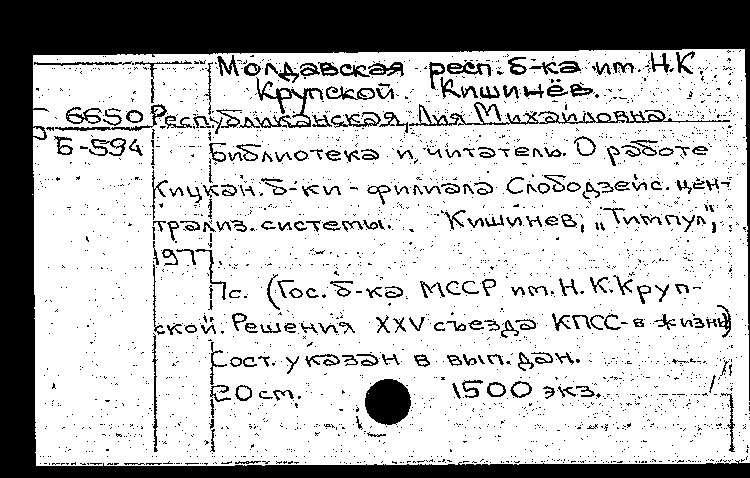 Молдавская респ. б-ка им. Н.К.
Крупской. Кишинёв.
Б 6650
Б-594
Республиканская, Лия Михайловна.
Библиотека и читатель. О работе
Кицкан. б-ки - филиала Слободзейс. цен-
трализ. системы. Кишинев, „Тимпул",
1977.
7с. (Гос. б-ка МССР им. Н.К. Круп-
ской. Решения XXV съезда КПСС - в жизнь)
Сост. указан в вып. дан.
20 cm. 1500 экз.